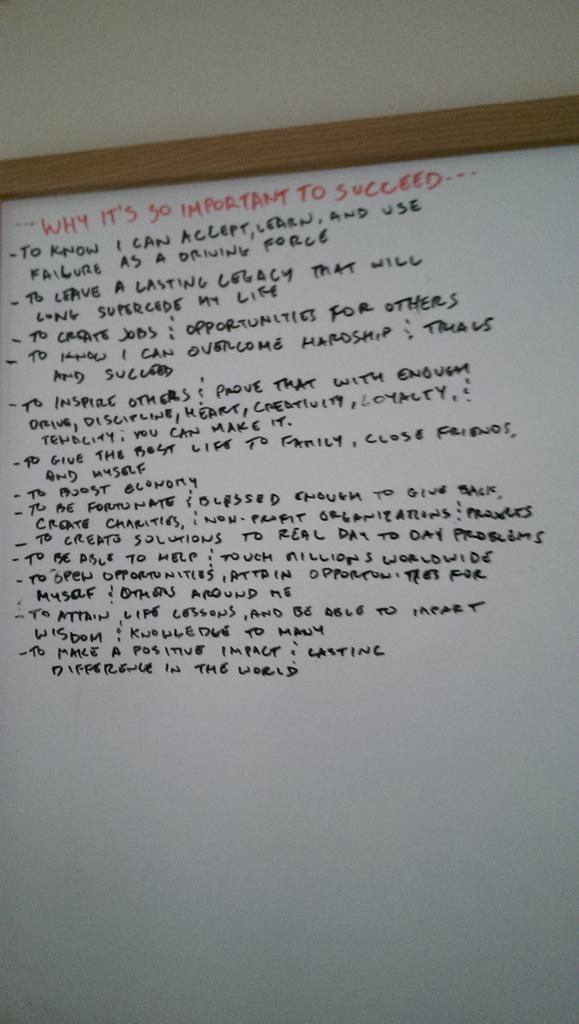 ... WHY IT'S SO IMPORTANT TO SUCCEED...
- TO KNOW I CAN ACCEPT, LEARN, AND USE
FAILURE AS A DRIVING FORCE
- TO LEAVE A LASTING LEGACY THAT WILL
LONG SUPERCEDE MY LIFE
- TO CREATE JOBS & OPPORTUNITIES FOR OTHERS
- TO KNOW I CAN OVERCOME HARDSHIP & TRIALS
AND SUCCEED
- TO INSPIRE OTHERS & PROVE THAT WITH ENOUGH
DRIVE, DISCIPLINE, HEART, CREATIVITY, LOYALTY, &
TENACITY; YOU CAN MAKE IT.
- TO GIVE THE BEST LIFE TO FAMILY, CLOSE FRIENDS,
AND MYSELF
- TO BOOST ECONOMY
- TO BE FORTUNATE & BLESSED ENOUGH TO GIVE BACK,
CREATE CHARITIES, & NON-PROFIT ORGANIZATIONS & PROJECTS
- TO CREATE SOLUTIONS TO REAL DAY TO DAY PROBLEMS
- TO BE ABLE TO HELP & TOUCH MILLIONS WORLDWIDE
- TO OPEN OPPORTUNITIES, ATTAIN OPPORTUNITIES FOR
MYSELF & OTHERS AROUND ME
- TO ATTAIN LIFE LESSONS, AND BE ABLE TO IMPART
WISDOM & KNOWLEDGE TO MANY
- TO MAKE A POSITIVE IMPACT & LASTING
DIFFERENCE IN THE WORLD